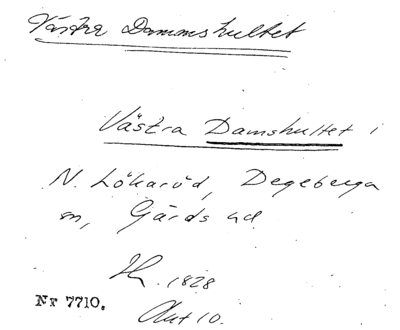 Västra Dammshultet
Västra Damshultet i
N. Lökaröd, Degeberga
sn, Gärds hd
1828
Nr 7710.
Akt 10.